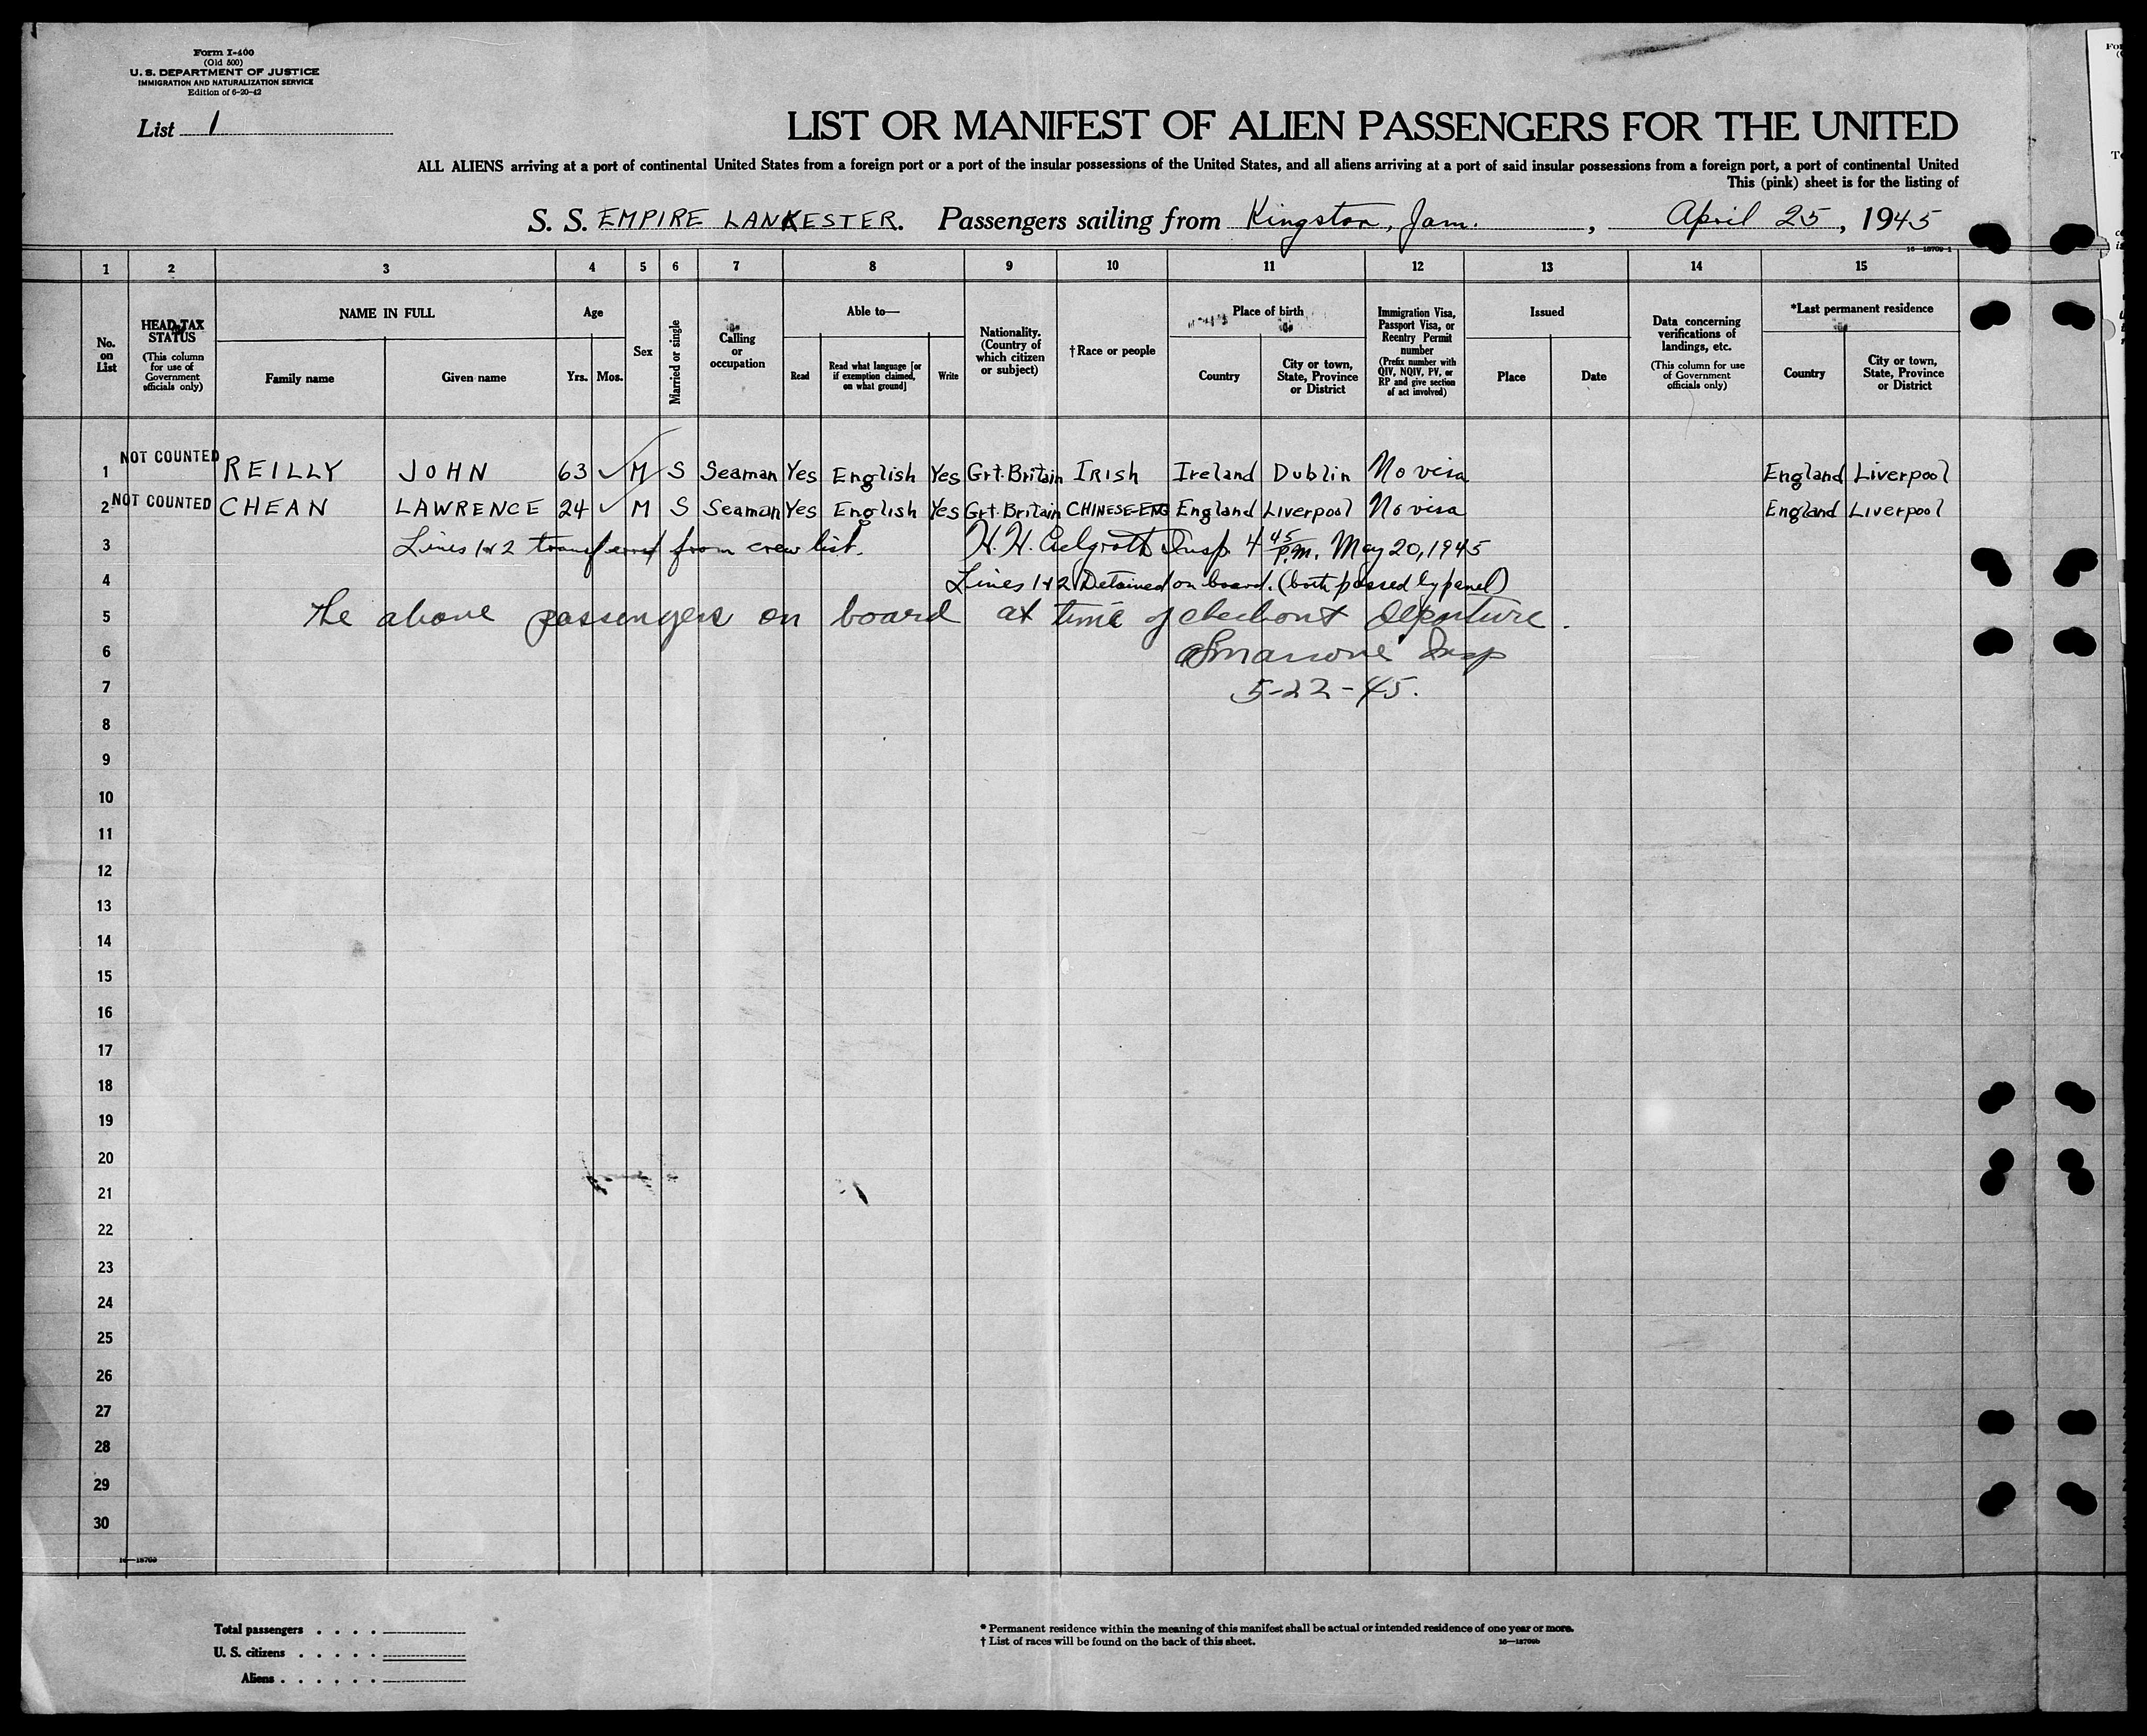 Form I-400
(Old 500)
U. S. DEPARTMENT OF JUSTICE
IMMIGRATION AND NATURALIZATION SERVICE
Edition of 6-20-42
List 1
LIST OR MANIFEST OF ALIEN PASSENGERS FOR THE UNITED
ALL ALIENS arriving at a port of continental United States from a foreign port or a port of the insular possessions of the United States, and all aliens arriving at a port of said insular possessions from a foreign port, a port of continental United
This (pink) sheet is for the listing of
S. S. EMPIRE LANKESTER. Passengers sailing from Kingston, Jam. , April 25, 1945
1 2 3 4 5 6 7 8 9 10 11 12 13 14 15
No. on List
HEAD-TAX STATUS
(This column for use of Government officials only)
NAME IN FULL
Family name Given name
Age
Yrs. Mos.
Sex
Married or single
Calling or occupation
Able to—
Read
Read what language [or if exemption claimed, on what ground]
Write
Nationality. (Country of which citizen or subject)
†Race or people
Place of birth
Country
City or town, State, Province or District
Immigration Visa, Passport Visa, or Reentry Permit number
(Prefix number with QIV, NQIV, PV, or RP and give section of act involved)
Issued
Place Date
Data concerning verifications of landings, etc.
(This column for use of Government officials only)
*Last permanent residence
Country
City or town, State, Province or District
1 NOT COUNTED REILLY JOHN 63 ✓ M S Seaman Yes English Yes Grt. Britain IRISH Ireland Dublin No visa England Liverpool
2 NOT COUNTED CHEAN LAWRENCE 24 ✓ M S Seaman Yes English Yes Grt. Britain CHINESE-ENG England Liverpool No visa England Liverpool
3 Lines 1 & 2 transferred from crew list. H. H. Insp. 4 45 p.m. May 20, 1945
4 Lines 1 & 2 Detained on board. (both passed by panel)
5 The above passengers on board at time of checkout departure.
6 Insp
7 5-22-45.
8
9
10
11
12
13
14
15
16
17
18
19
20
21
22
23
24
25
26
27
28
29
30
Total passengers
U. S. citizens
Aliens
* Permanent residence within the meaning of this manifest shall be actual or intended residence of one year or more.
† List of races will be found on the back of this sheet.